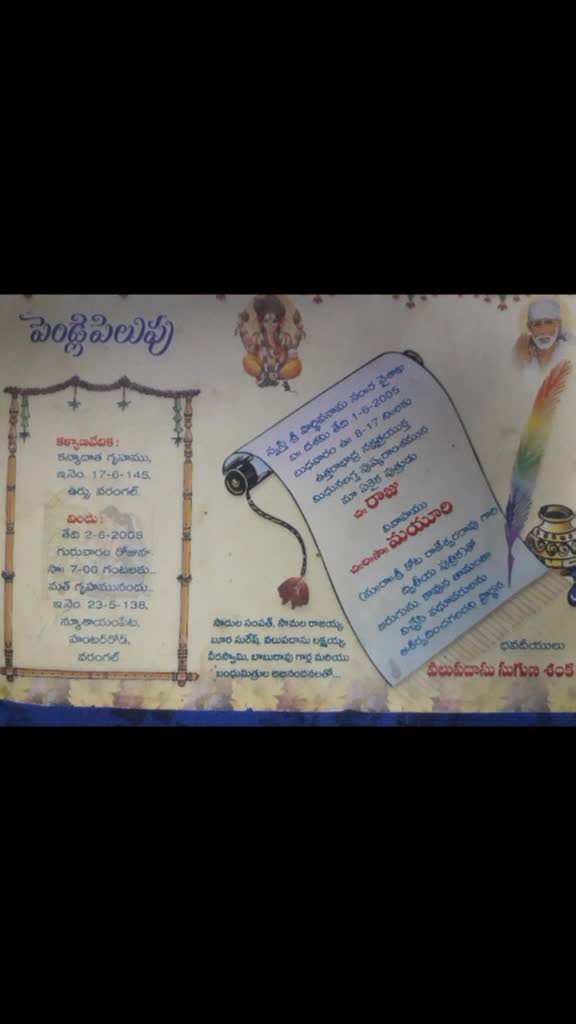 పెండ్లిపిలుపు
కళ్యాణవేదిక :
కన్యాదాత గృహము,
ఇ.నెం. 17-6-145,
ఉర్సు, వరంగల్.
విందు :
తేది 2-6-2005
గురువారం రోజున
సా॥ 7-00 గంటలకు..
మత్ గృహమునందు..
ఇ.నెం. 23-5-138,
న్యూశాయంపేట,
హంటర్‌రోడ్,
వరంగల్
స్వస్తి శ్రీ పార్థివనామ సం॥ర వైశాఖ
బ॥ దశమి తేది 1-6-2005
బుధవారం ఉ॥ 8-17 ని॥లకు
ఉత్తరాభాద్ర నక్షత్రయుక్త
మిథునలగ్న పుష్కరాంశమున
మా ఏకైక పుత్రుడు
చి॥ రాజు
వివాహము
చి॥ల॥సౌ॥ మయూరి
(మా॥రా॥శ్రీ కోట రాజేశ్వరరావు గారి
ద్వితీయ పుత్రిక)తో
జరుగును. కావున తామంతా
విచ్చేసి వధూవరులను
ఆశీర్వదించగలరని ప్రార్థన
సాదుల సంపత్, సామల రాజయ్య
బూర సురేష్, వలుపదాసు లక్ష్మయ్య
వీరస్వామి, బాబురావు గార్ల మరియు
బంధుమిత్రుల అభినందనలతో...
భవదీయులు
వలుపదాసు సుగుణ శంక